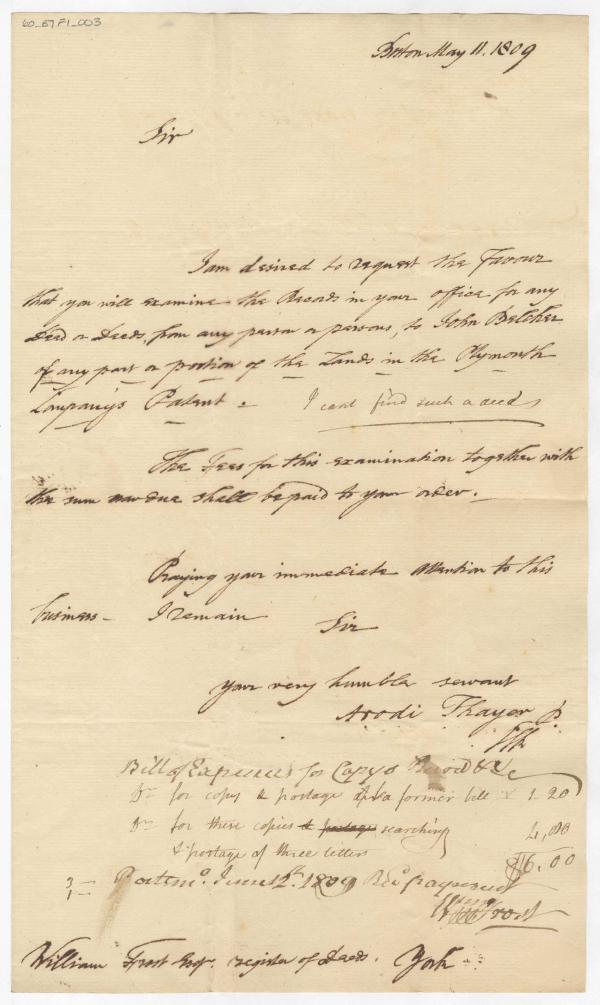 60_E7F1_003
Boston May 11. 1809
Sir
I am desired to request the Favour
that you will examine the Records in your office for any
Deed or Deeds, from any person or persons, to John Belcher
of any part or portion of the Lands in the Plymouth
Company's Patent. I cant find such a deed
The Fees for this examination together with
the sum now due shall be paid to your order.
Praying your immediate attention to this
business - I remain
Sir
your very humble servant
Arodi Thayer
Bill of Expences for Copys Record &c
for copys & postage a former bill 1-20
for these copies & postage searching 4,80
& postage of three letters
$6.00
June 12th. 1809 Recd payment
Wm Frost
William Frost Esqr. register of Deeds. York